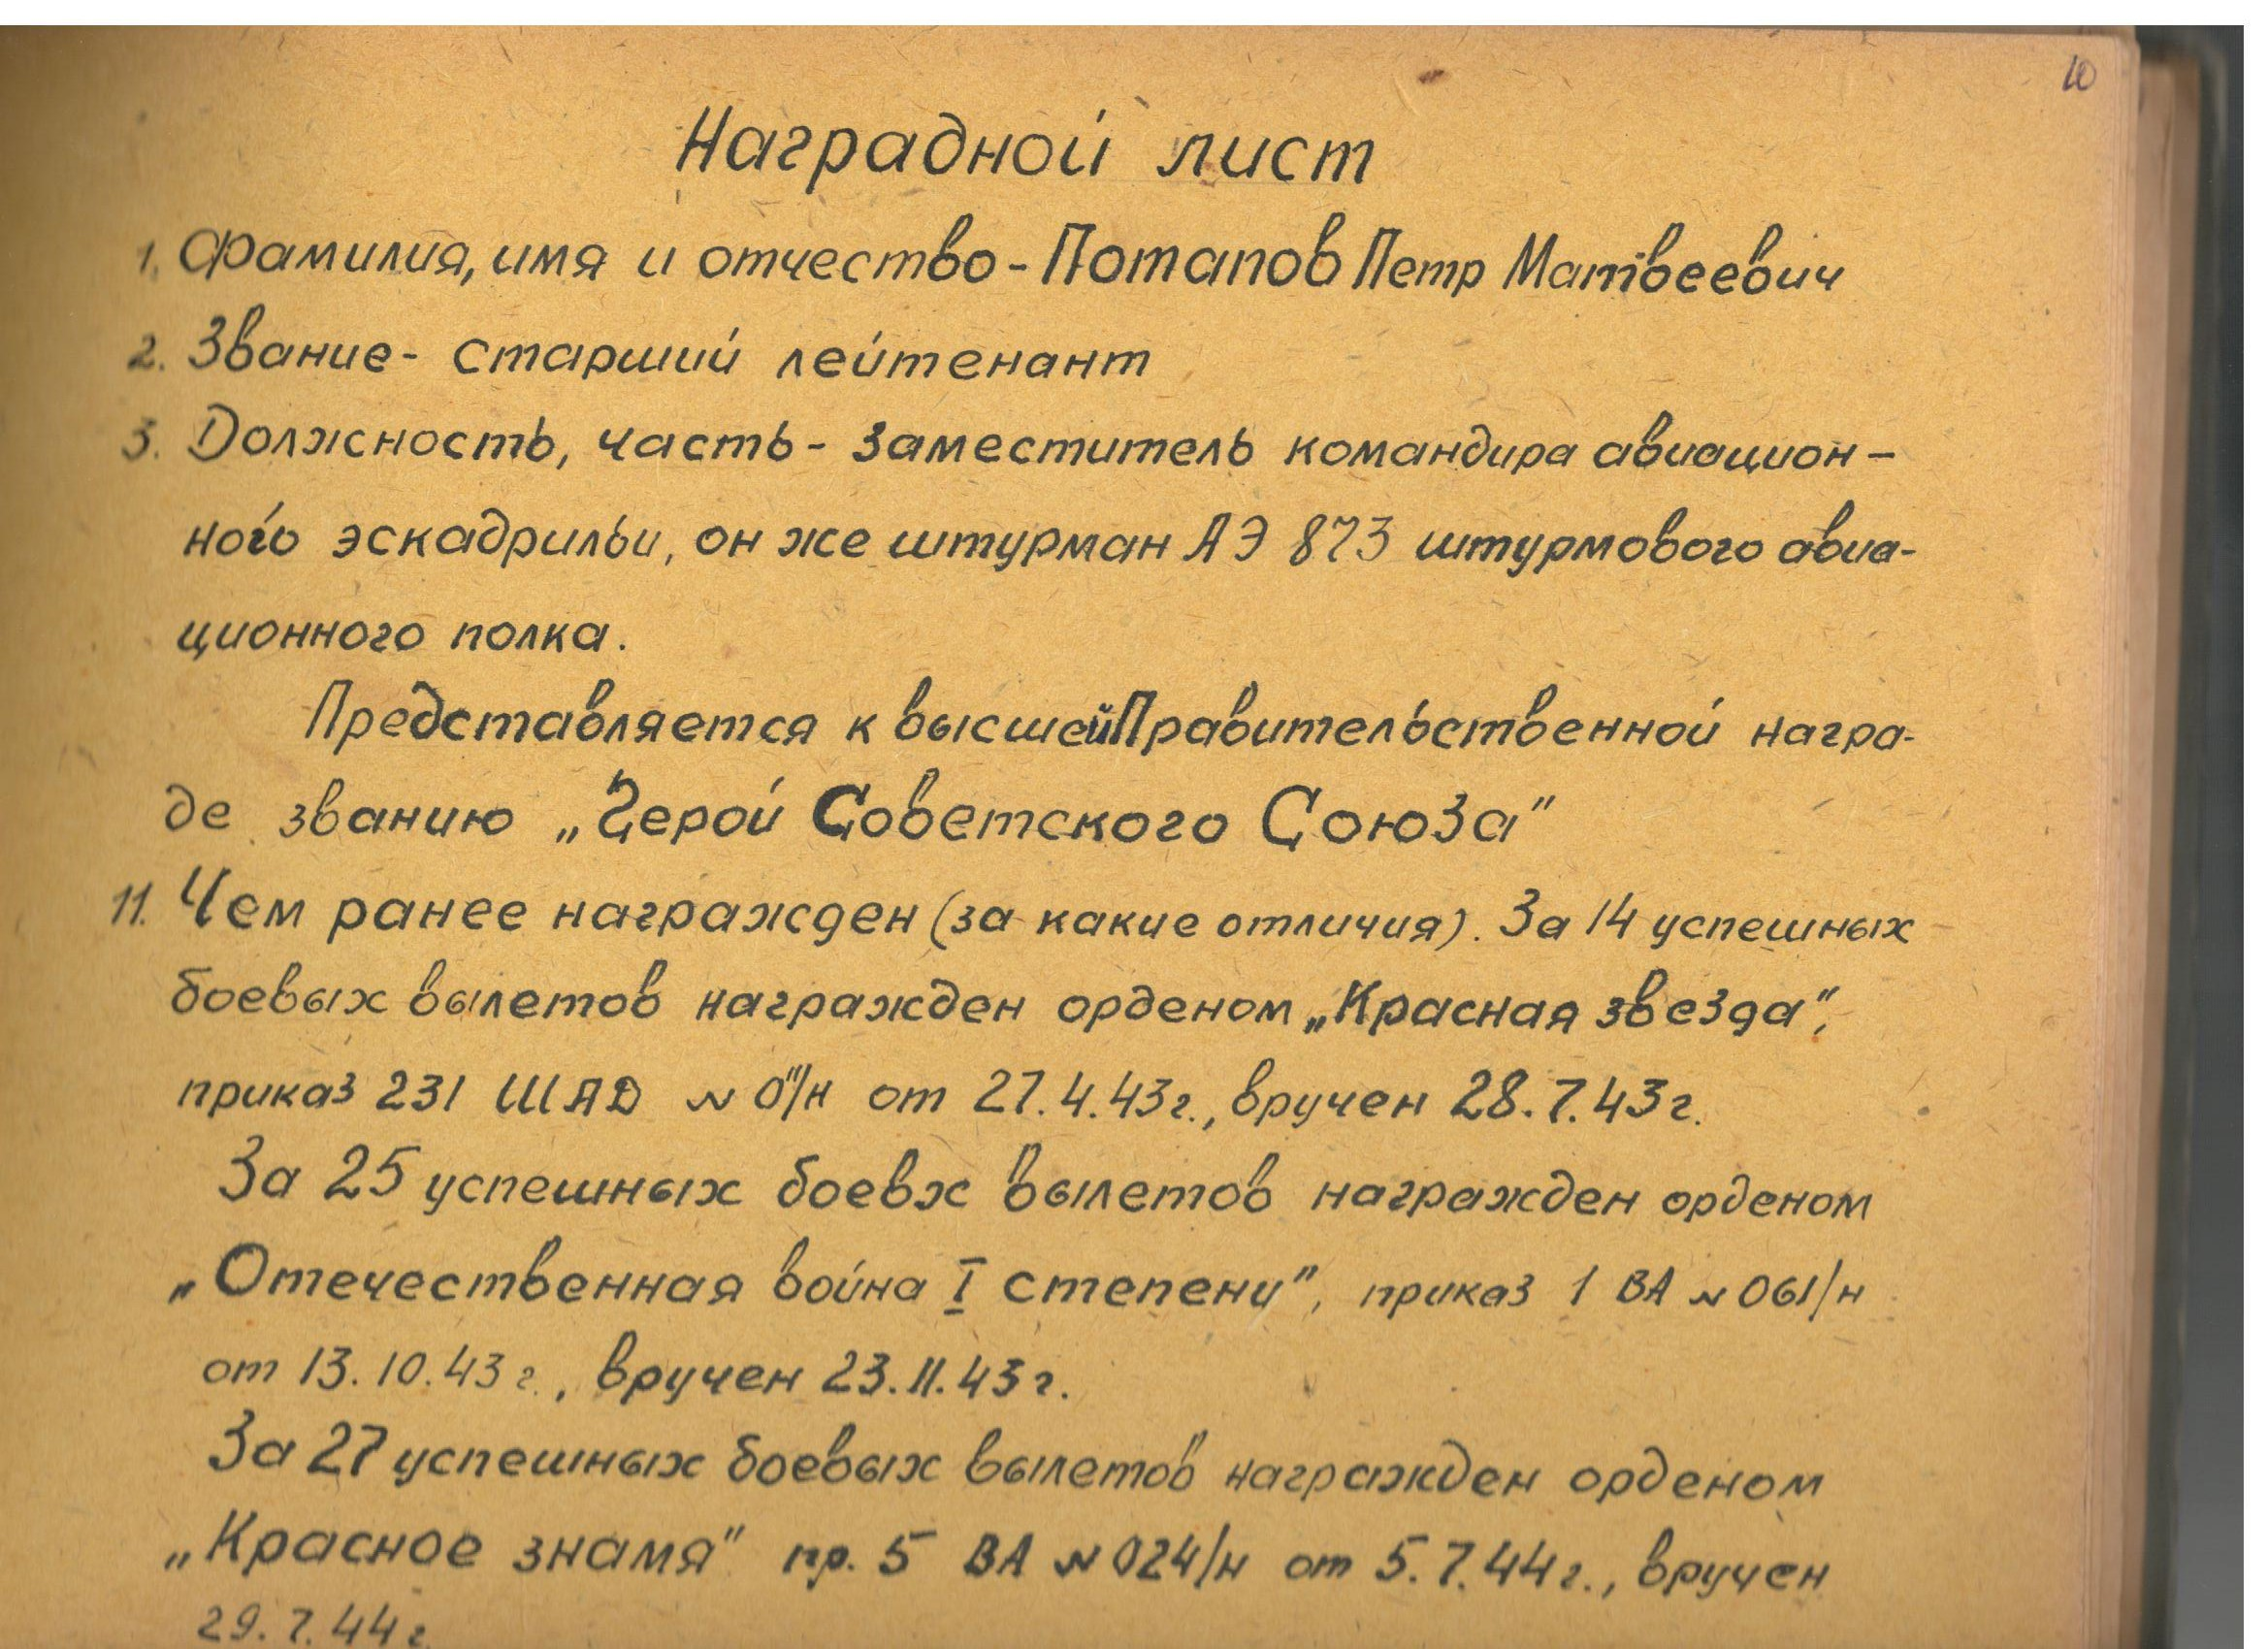 10
Наградной лист
1. Фамилия, имя и отчество - Потапов Петр Матвеевич
2. Звание - старший лейтенант
3. Должность, часть - заместитель командира авиацион-
ного эскадрильи, он же штурман АЭ 873 штурмового авиа-
ционного полка.
Представляется к высшей Правительственной награ-
де званию „Герой Советского Союза"
11. Чем ранее награжден (за какие отличия). За 14 успешных
боевых вылетов награжден орденом „Красная звезда",
приказ 231 ШАД № 0"/н от 27.4.43г., вручен 28.7.43г.
За 25 успешных боевх вылетов награжден орденом
„Отечественная война I степени", приказ 1 ВА № 061/н
от 13.10.43г., вручен 23.11.43г.
За 27 успешных боевых вылетов награжден орденом
„Красное знамя" пр. 5 ВА № 024/н от 5.7.44г., вручен
29.7.44г.